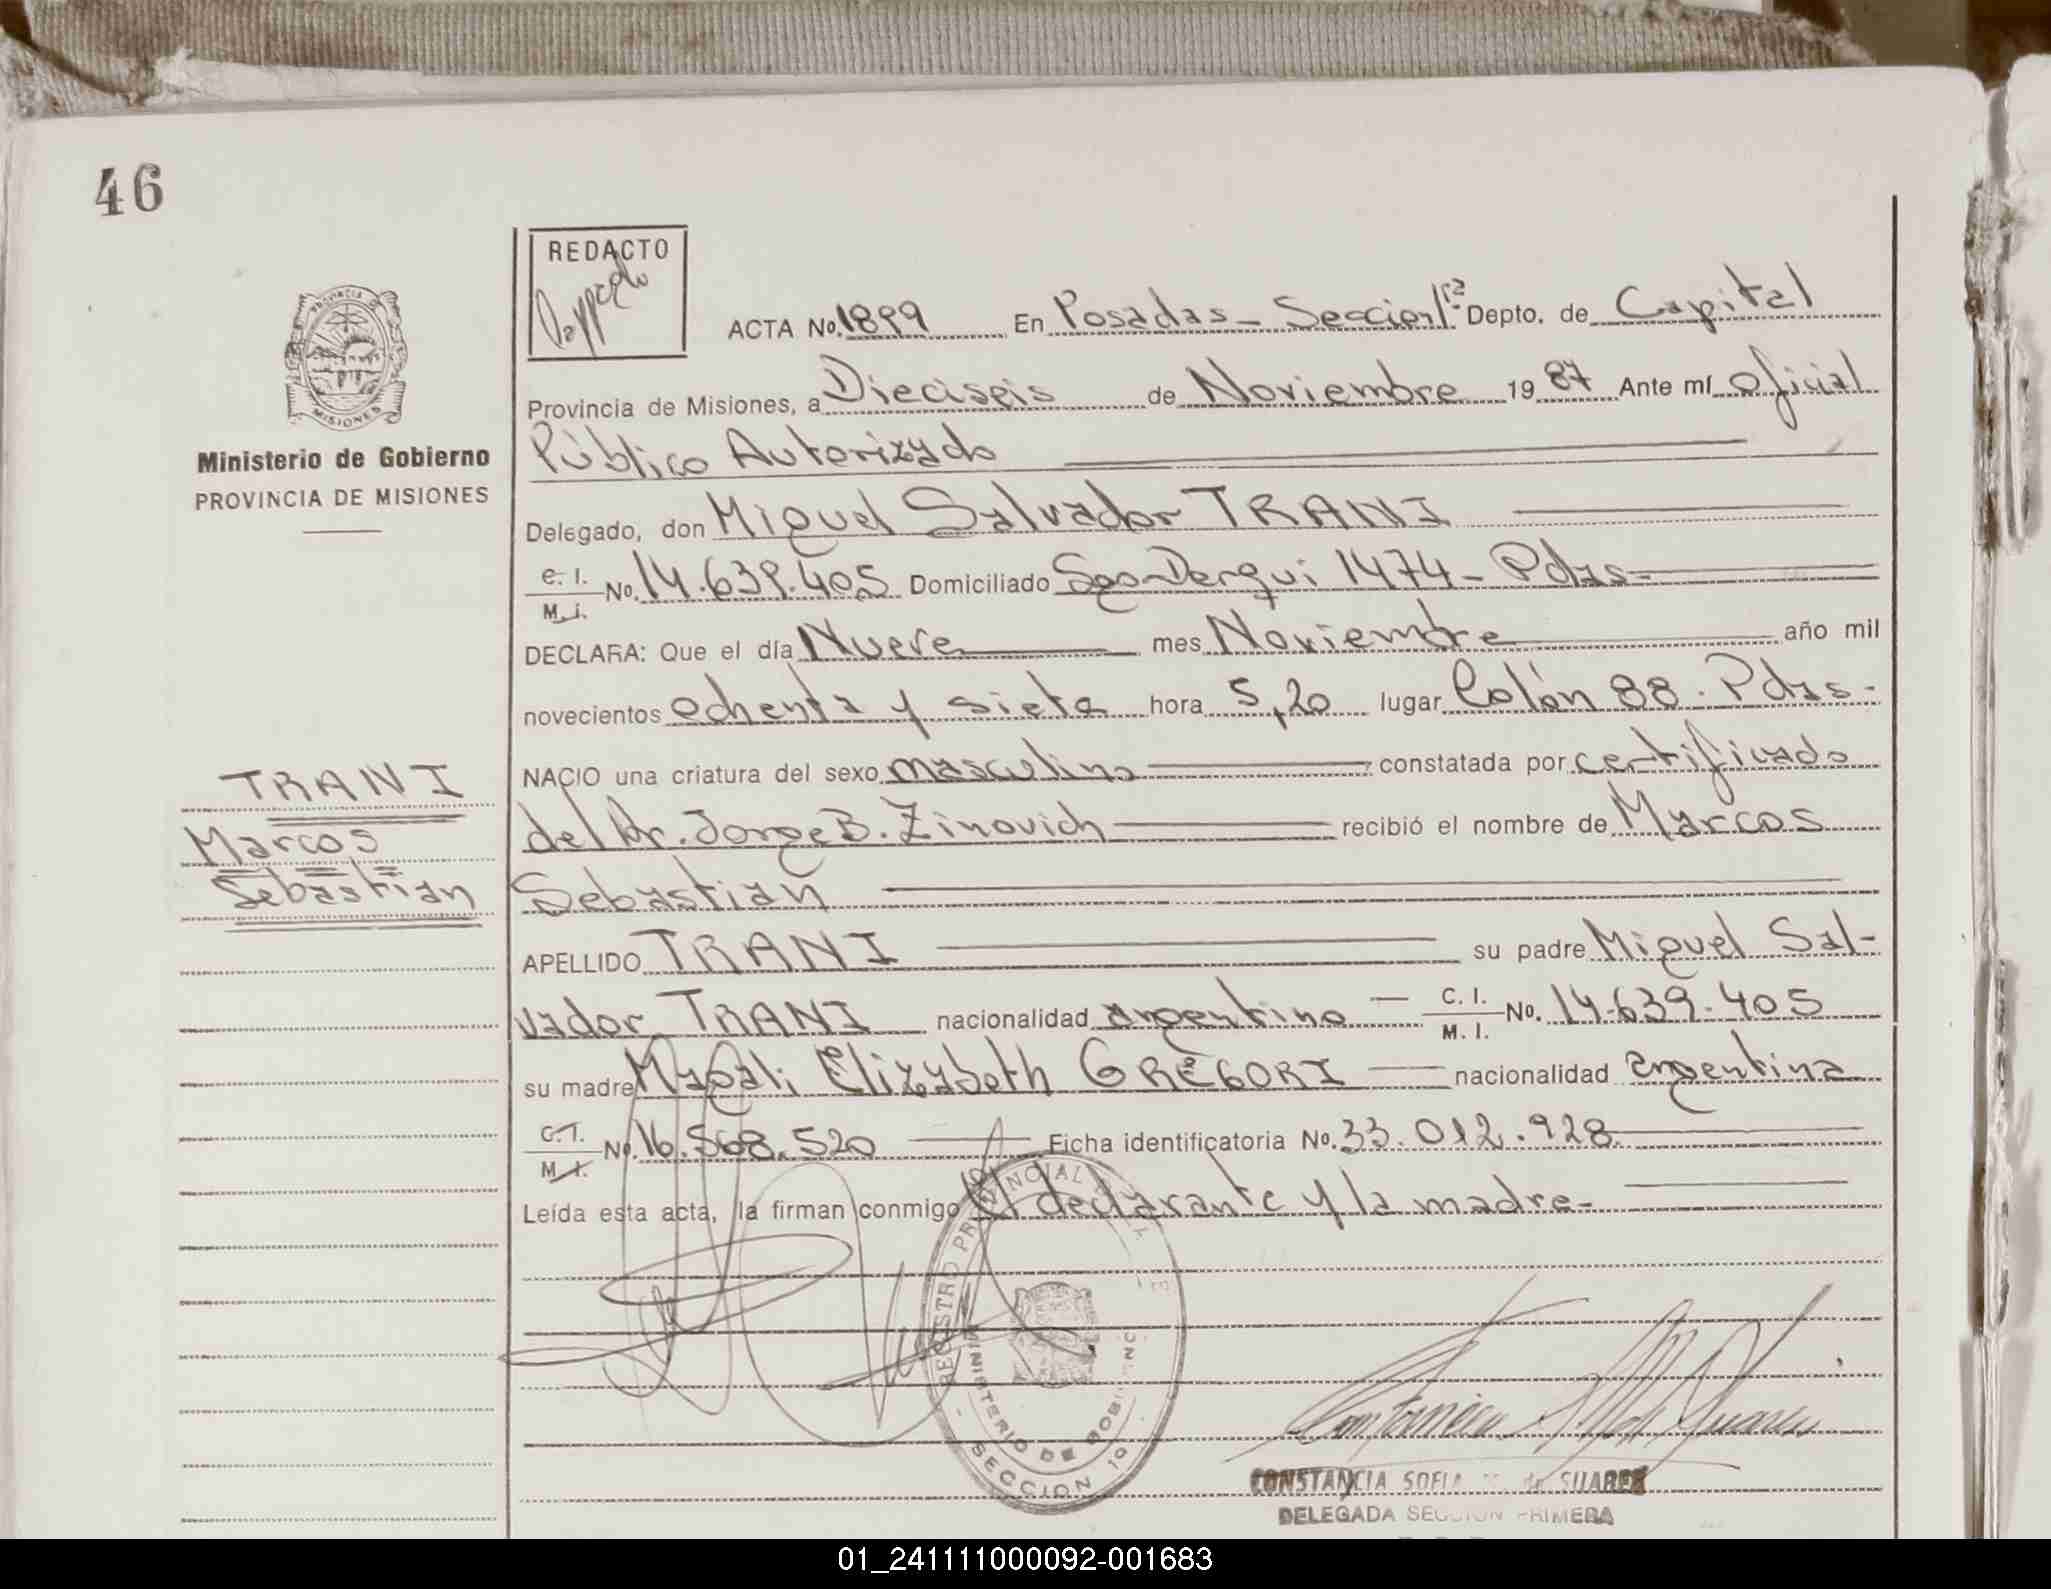 46
REDACTO
ACTA No. 1899 En Posadas - Seccion 1ra Depto. de Capital
Provincia de Misiones, a Dieciseis de Noviembre 19 87 Ante mí oficial
Público Autorizado
Ministerio de Gobierno
PROVINCIA DE MISIONES
Delegado, don Miguel Salvador TRANI
C. I. M. I. No. 14.639.405 Domiciliado Sgo Derqui 1474 - Pdas -
DECLARA: Que el día Nueve mes Noviembre año mil
novecientos ochenta y siete hora 5,20 lugar Colón 88. Pdas -
NACIO una criatura del sexo masculino constatada por certificado
TRANI
del Dr. Jorge B. Zinovich recibió el nombre de Marcos
Marcos
Sebastian
Sebastian
APELLIDO TRANI su padre Miguel Sal-
vador TRANI nacionalidad argentino C. I. M. I. No. 14.639.405
su madre Magali Elizabeth GREGORI nacionalidad argentina
C. I. M. I. No. 16.568.520 Ficha identificatoria No. 33.012.928
Leída esta acta, la firman conmigo el declarante y la madre -
REGISTRO PROVINCIAL
MINISTERIO DE GOBIERNO
SECCION 1a
CONSTANCIA SOFIA de SUAREZ
DELEGADA SECCION PRIMERA
01_241111000092-001683